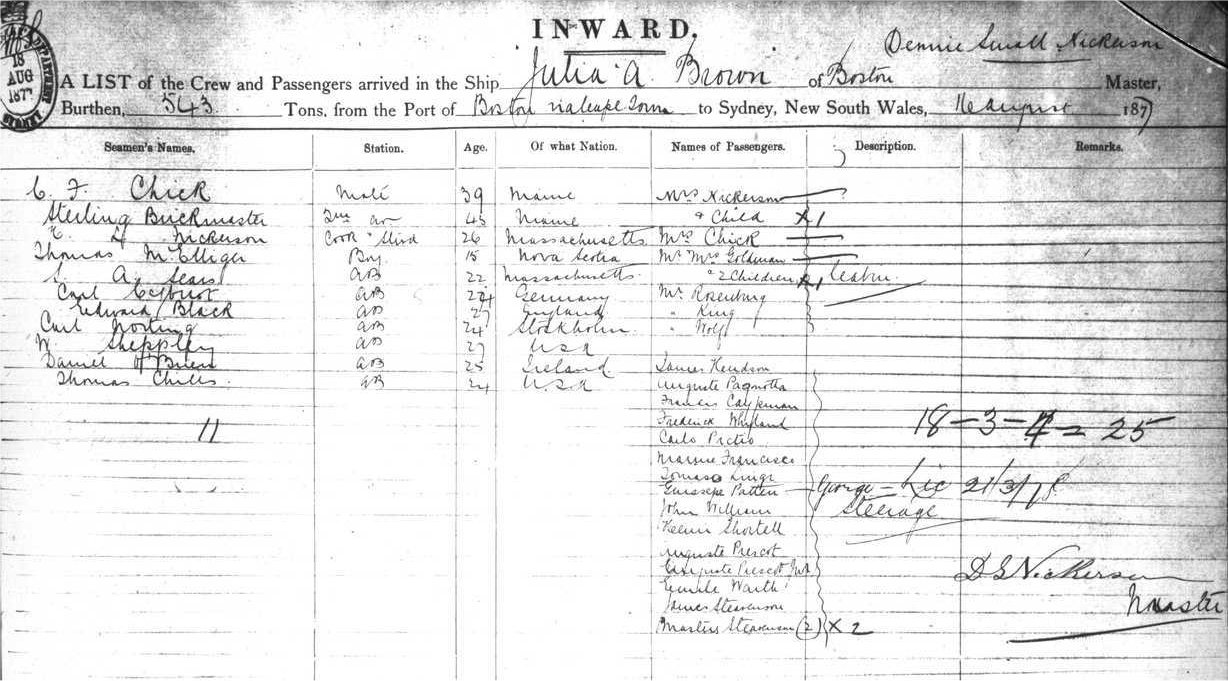 INWARD.
18
AUG
187
SYDNEY
Dennie Small Nickerson
A LIST of the Crew and Passengers arrived in the Ship Julia A. Brown of Boston Master,
Burthen, 543 Tons, from the Port of Boston via Cape Town to Sydney, New South Wales, 16 August 1877
Seamen's Names. Station. Age. Of what Nation. Names of Passengers. Description. Remarks.
3
C. F. Chick Mate 39 Maine Mrs Nickerson
Sterling Buckmaster 45 Maine & Child X 1
Nickerson Cook & Stwd 26 Massachusetts Mrs Chick
Thomas McElliger Boy 15 Nova Scotia Mr Mrs Goldman
A. Sears AB 22 Massachusetts " 2 Children X 1 Cabin
Carl AB 24 Germany Mr Rosenburg
Edward Black AB 27 England " King
Carl Norting AB 24 Stockholm " Wolf
W. Sheppley AB 27 USA
Daniel O'Brien AB 25 Ireland James Hendson
Thomas Chills AB 24 U.S.A Auguste Pagnotta
Francis
Frederick Whyland
11 18-3-4 = 25
Carlo Pietro
Francisco
Tomaso
Guiseppe Patten George - Lic 21/3/78
John William Steerage
Shortell
Auguste Prescot
Auguste Prescot Jnr
Emile Warth
James Stevenson
D S Nickerson
Master
Masters Stevenson (2) X 2